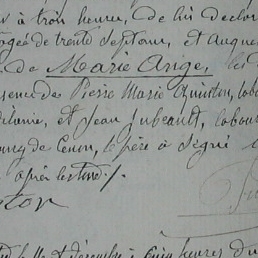 à trois heures, de lui déclar
agée de trente sept ans, et auque
de Marie Ange, les
sence de Pierre Marie Quinton, lab
et Jean Jubeault, labour
bourg de Cenon, le père a signé
après lecture ./.
ton
décembre à cinq heures du